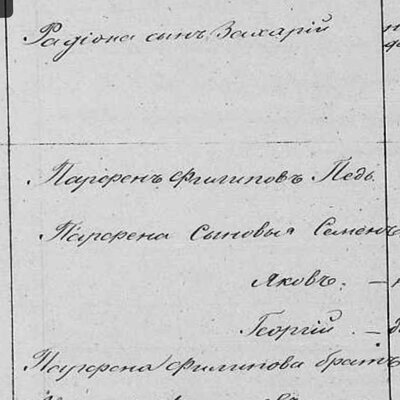 Радіона сынъ Захарій
Парфенъ Филиповъ Педь.
Парфена Сыновья Семенъ
Яковъ. —
Георгій. —
Парфена Филипова братъ